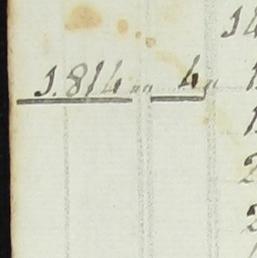 14
1.814 " " 4 "
1
1
2
2